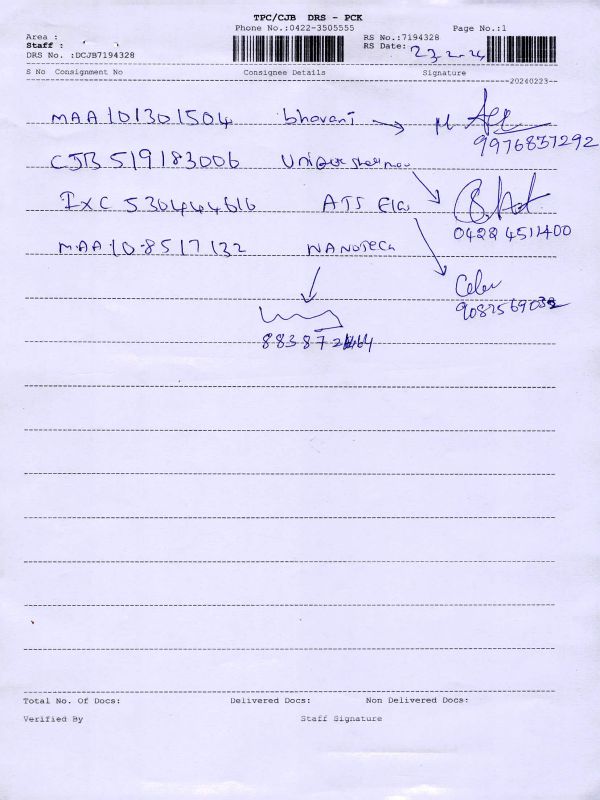 TPC/CJB DRS - PCK
Phone No.:0422-3505555 Page No.:1
Area : RS No.:7194328
Staff : RS Date: 23.2.24
DRS No. :DCJB7194328
S No Consignment No Consignee Details Signature
20240223
MAA101301504 bhavani
9976837292
CJB 519183006 Unique
IXC 530444616 ATS Ele
04224511400
MAA108517132 NANOTECH
9082569032
88387
Total No. Of Docs: Delivered Docs: Non Delivered Docs:
Verified By Staff Signature